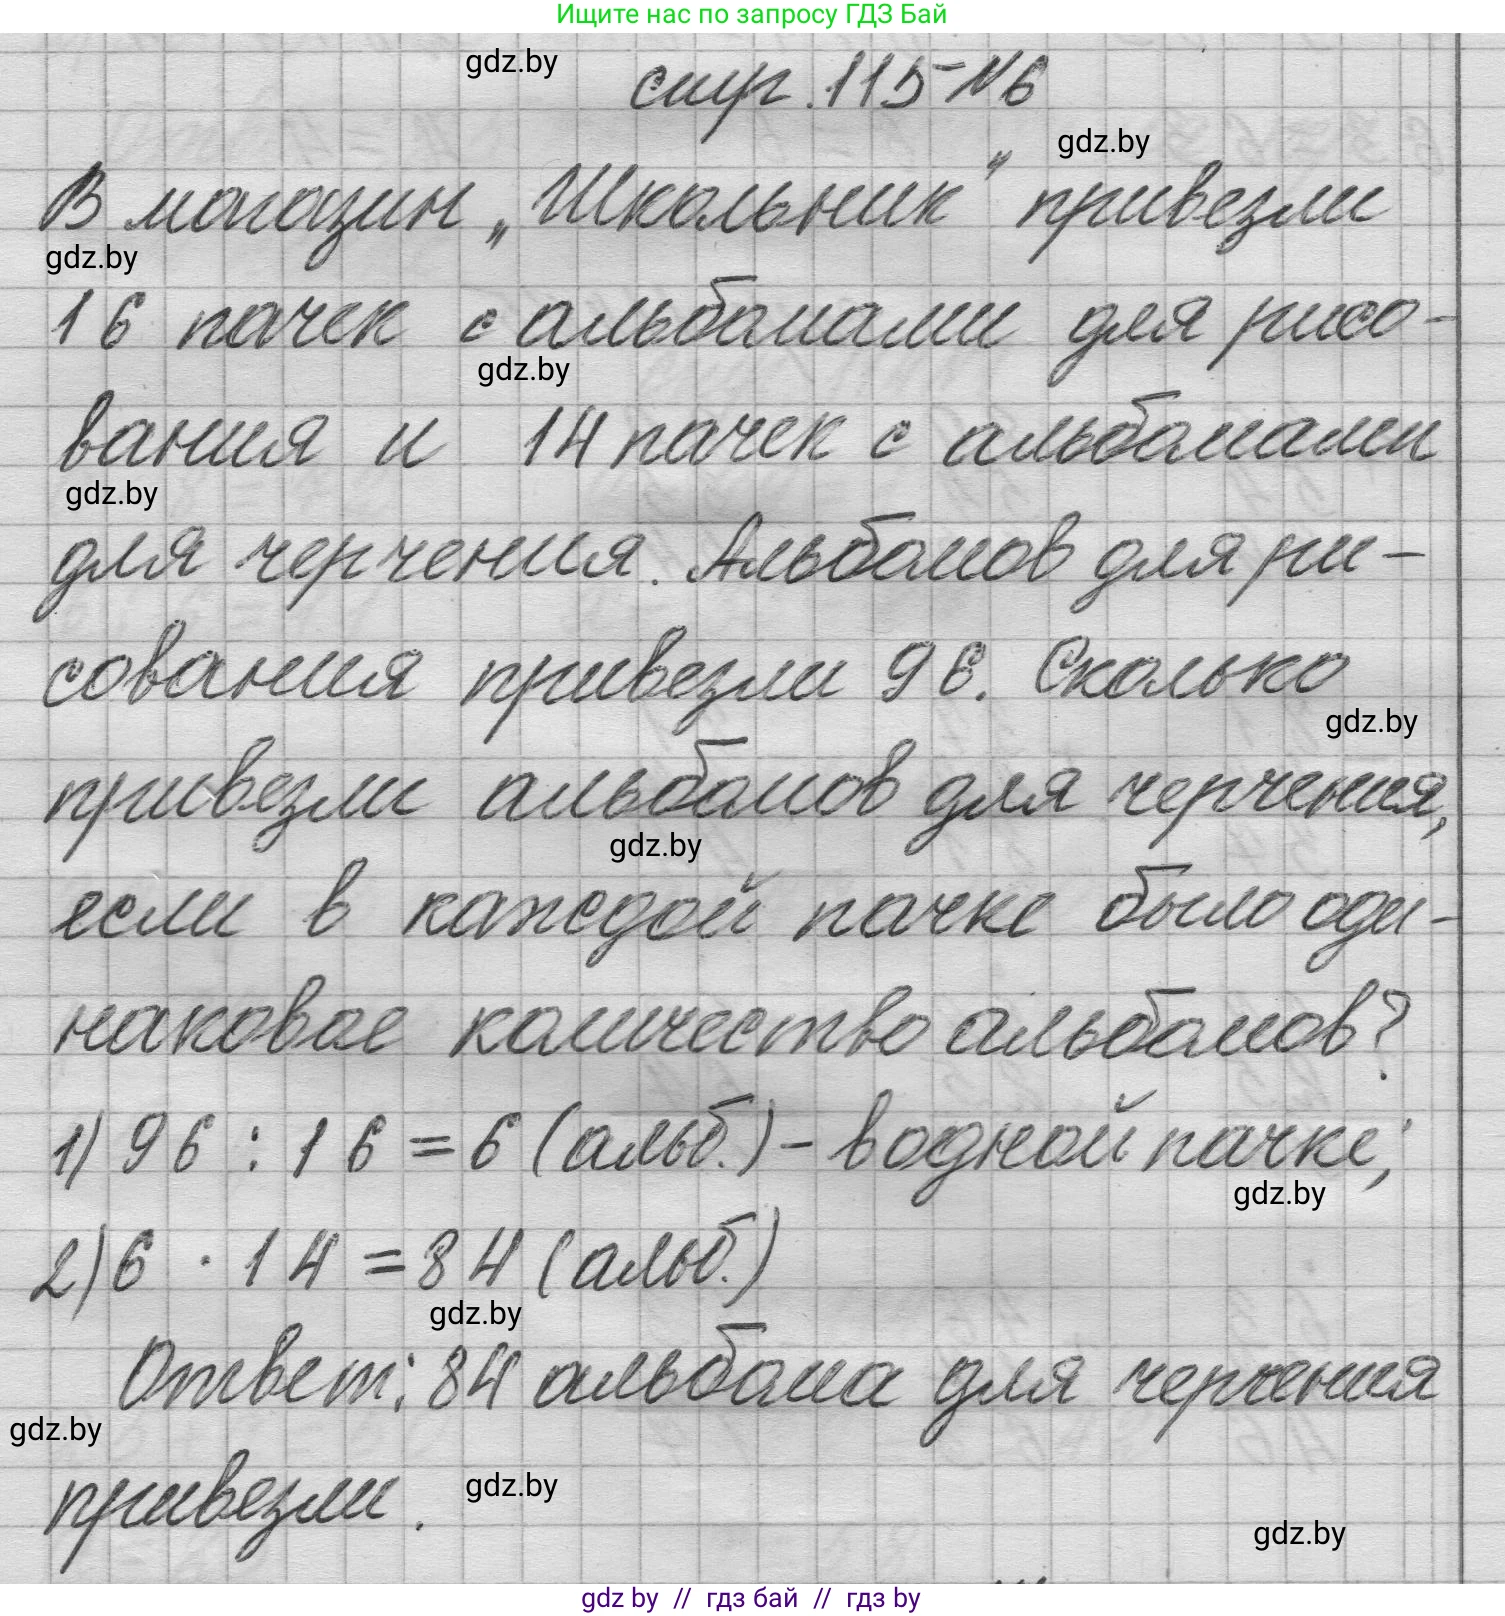 Ищите нас по запросу ГДЗ Бай
gdz.by
стр. 115 №6
gdz.by
В магазин „Школьник" привезли
gdz.by
16 пачек с альбомами для рисо-
gdz.by
вания и 14 пачек с альбомами
gdz.by
для черчения. Альбомов для ри-
сования привезли 96. Сколько
gdz.by
привезли альбомов для черчения,
gdz.by
если в каждой пачке было оди-
наковое количество альбомов?
1) 96 : 16 = 6 (альб.) - в одной пачке;
gdz.by
2) 6 · 14 = 84 (альб.)
gdz.by
Ответ: 84 альбома для черчения
gdz.by
привезли.
gdz.by
gdz.by
gdz by // гдз бай // гдз by